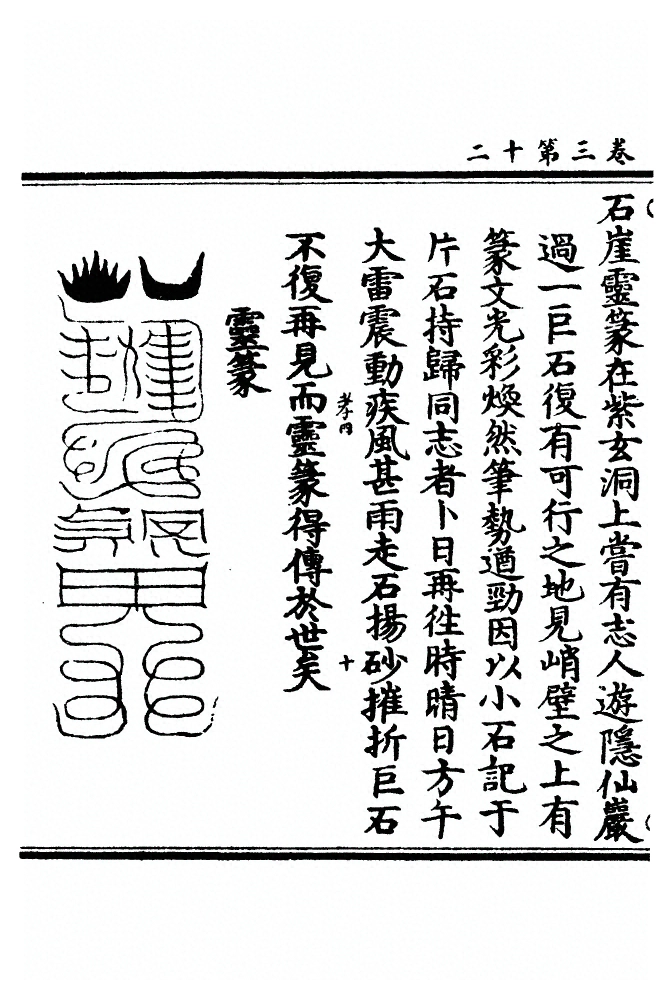 卷三第十二
石崖靈篆在紫玄洞上嘗有志人遊隱仙巖
過一巨石復有可行之地見峭壁之上有
篆文光彩煥然筆勢遒勁因以小石記于
片石持歸同志者卜日再徃時晴日方午
大雷震動疾風甚雨走石揚砂摧折巨石
孝内
十
不復再見而靈篆得傳於世矣
靈篆